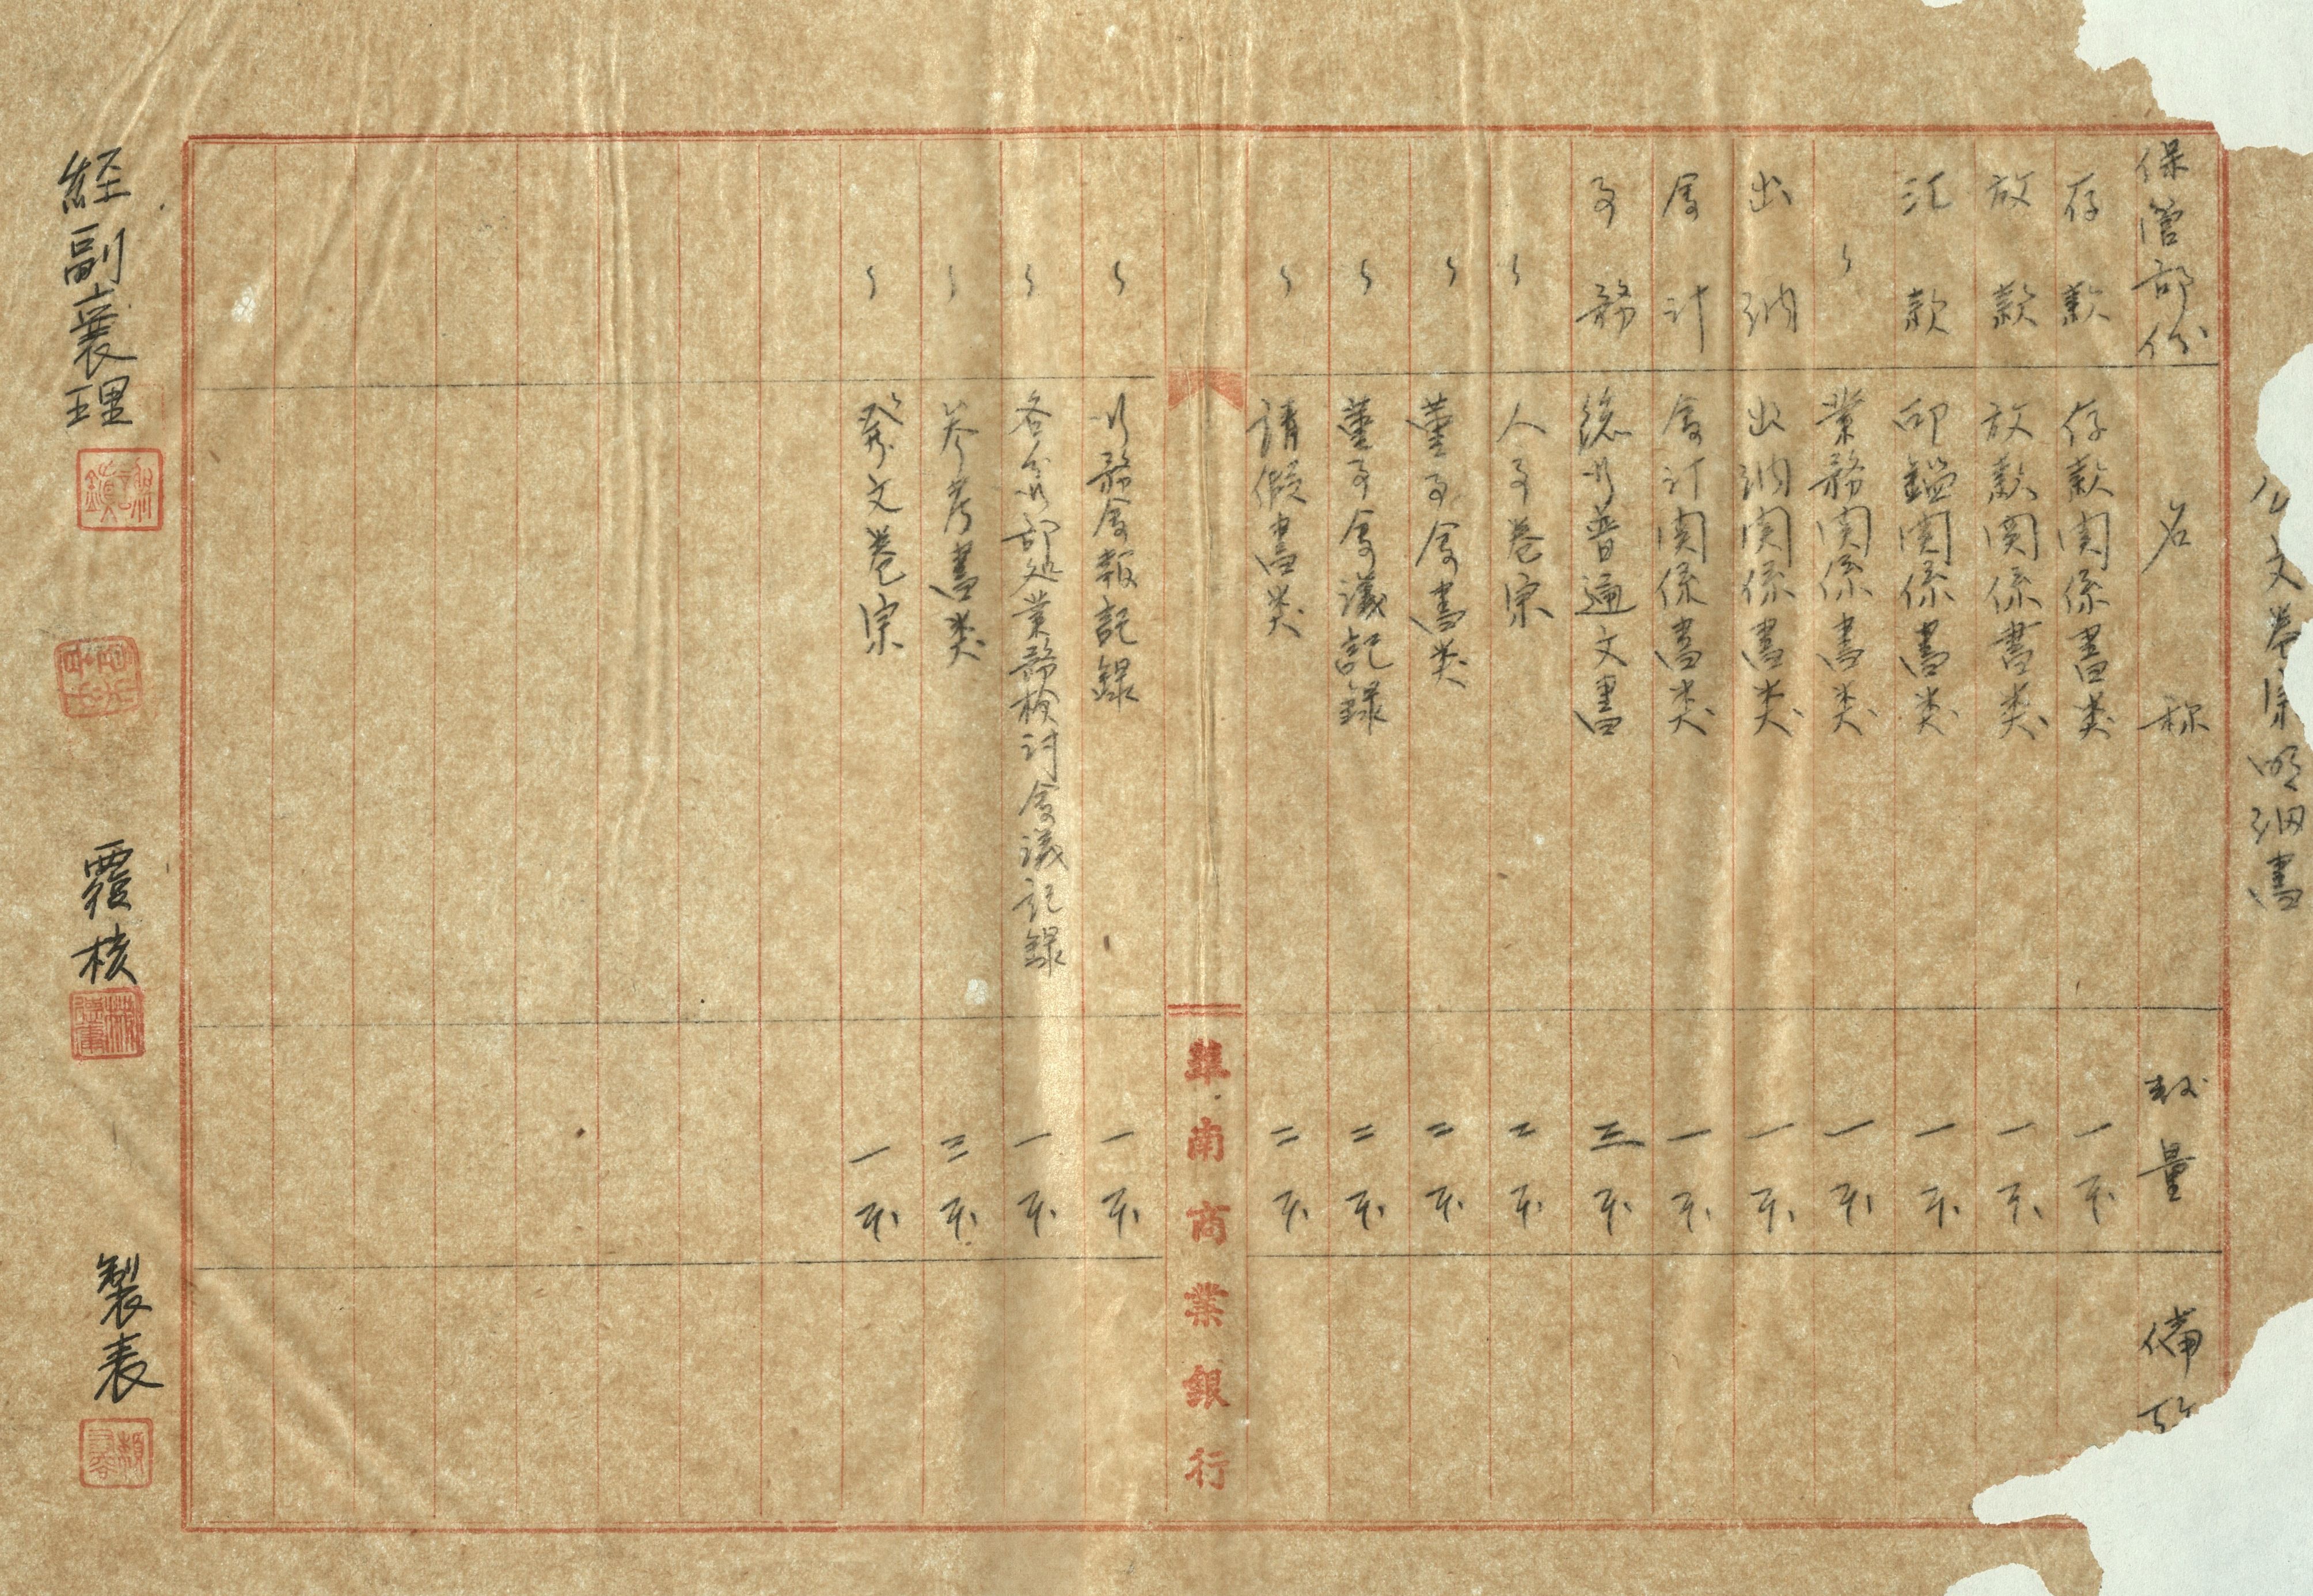 公文卷宗明細書
保管部份 名称 数量 備考
存款 存款関係書类 一本
放款 放款関係書类 一本
汇款 印鑑関係書类 一本
〃 業務関係書类 一本
出納 出納関係書类 一本
會計 會計関係書类 一本
事務 総行普通文書 三本
〃 人事卷宗 二本
〃 董事會書类 二本
〃 董事會議記録 二本
〃 請假書类 二本
華南商業銀行
〃 行務會報記録 一本
〃 各分行部処業務検討會議記録 一本
〃 参考書类 三本
〃 発文卷宗 一本
経副襄理
覆核
製表